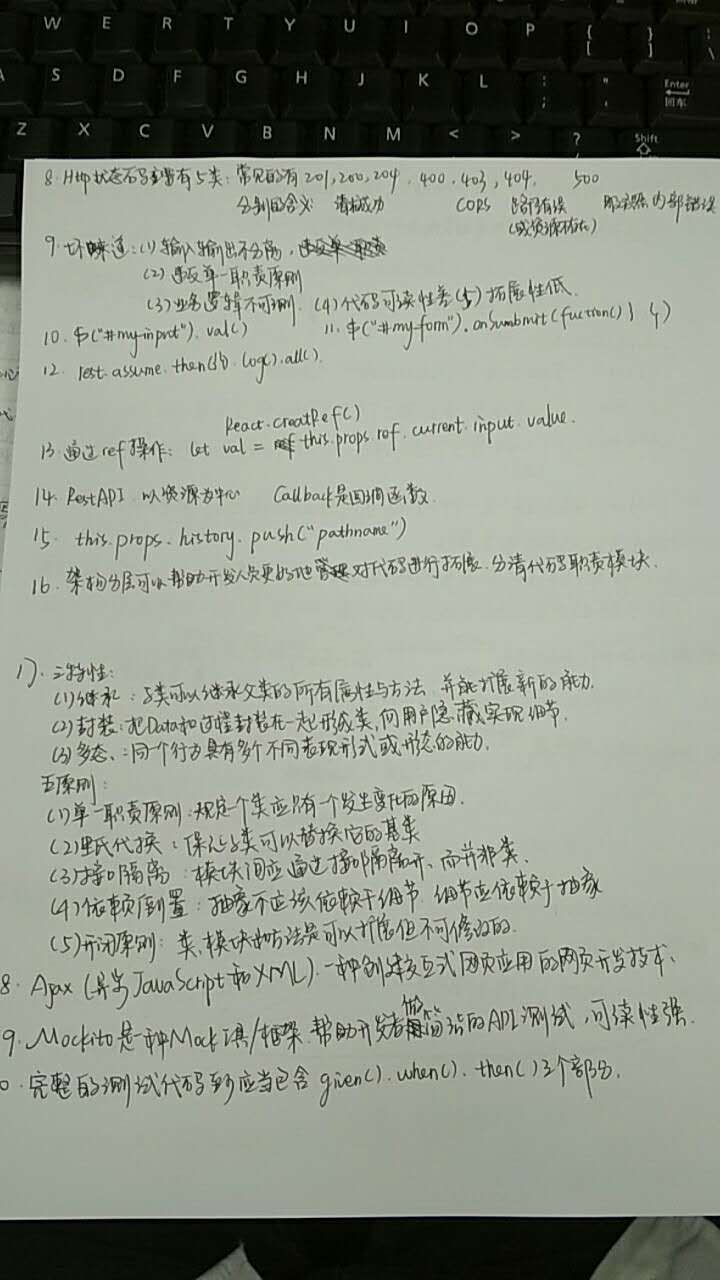 W E R T Y U I O P { [ } ]
S D F G H J K L : ; " ' Enter 回车
Z X C V B N M < > ? / Shift
8. Http状态码主要有5类: 常见的有201,200,204, 400, 403, 404, 500
分别的含义 请求成功 CORS 路径有误 服务器内部错误
(或资源不存在)
9. 坏味道:(1)输入输出不分离,
(2) 违反单一职责原则
(3)业务逻辑不可测 (4)代码可读性差(5)拓展性低.
10. $("#my-input").val() 11. $("#my-form").onSumbmit(fuction(){ })
12. rest.assume.then().log().all().
React.creatRef()
13. 通过ref操作: let val = this.props.ref.current.input.value.
14. RestAPI 以资源为中心 Callback是回调函数.
15. this.props.history.push("pathname")
16. 架构分层可以帮助开发人员更好地管理对代码进行拓展.分清代码职责模块.
17. 三特性:
(1)继承: 子类可以继承父类的所有属性与方法 并能扩展新的能力.
(2)封装:把Data和过程封装在一起形成类,向用户隐藏实现细节.
(3)多态:同一个行为具有多个不同表现形式或形态的能力.
五原则:
(1)单一职责原则:规定一个类应只有一个发生变化的原因.
(2)里氏代换: 保证子类可以替换它的基类
(3)接口隔离: 模块间应通过接口隔离开,而并非类.
(4)依赖倒置: 抽象不应该依赖于细节,细节应依赖于抽象
(5)开闭原则: 类,模块的方法是可以扩展但不可修改的.
8. Ajax (异步JavaScript和XML).一种创建交互式网页应用的网页开发技术.
9. Mockito是一种Mock工具/框架.帮助开发者做简洁的API测试,可读性强.
0. 完整的测试代码应当包含 given().when().then()三个部分.